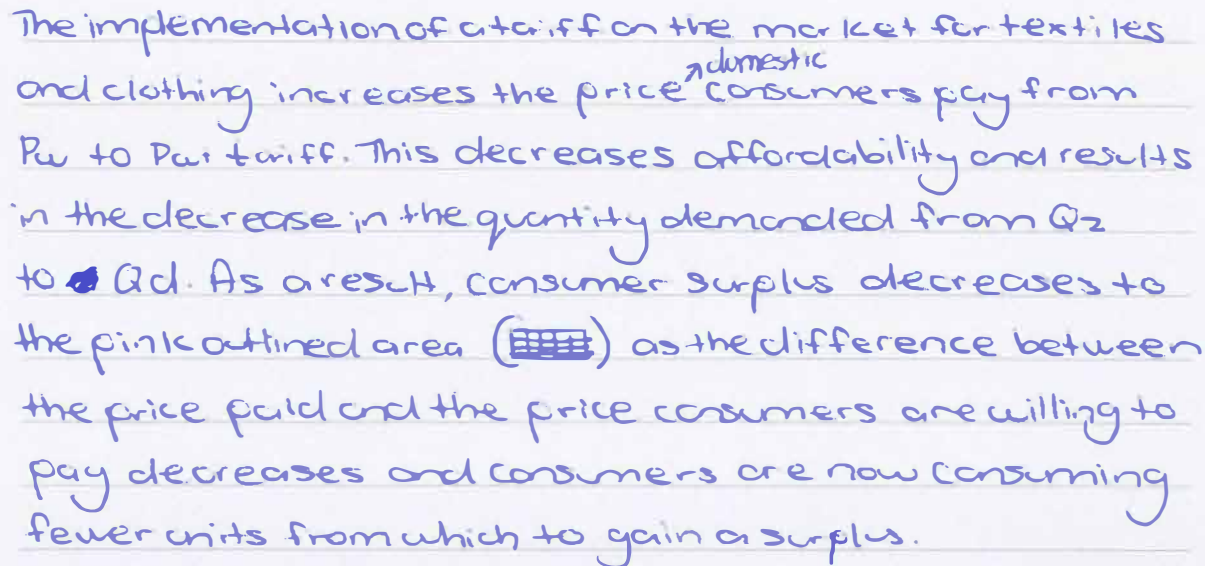 The implementation of a tariff on the market for textiles
and clothing increases the price ↗domestic consumers pay from
Pw to Pw + tariff. This decreases affordability and results
in the decrease in the quantity demanded from Q2
to Qd. As a result, consumer surplus decreases to
the pink outlined area () as the difference between
the price paid and the price consumers are willing to
pay decreases and consumers are now consuming
fewer units from which to gain a surplus.